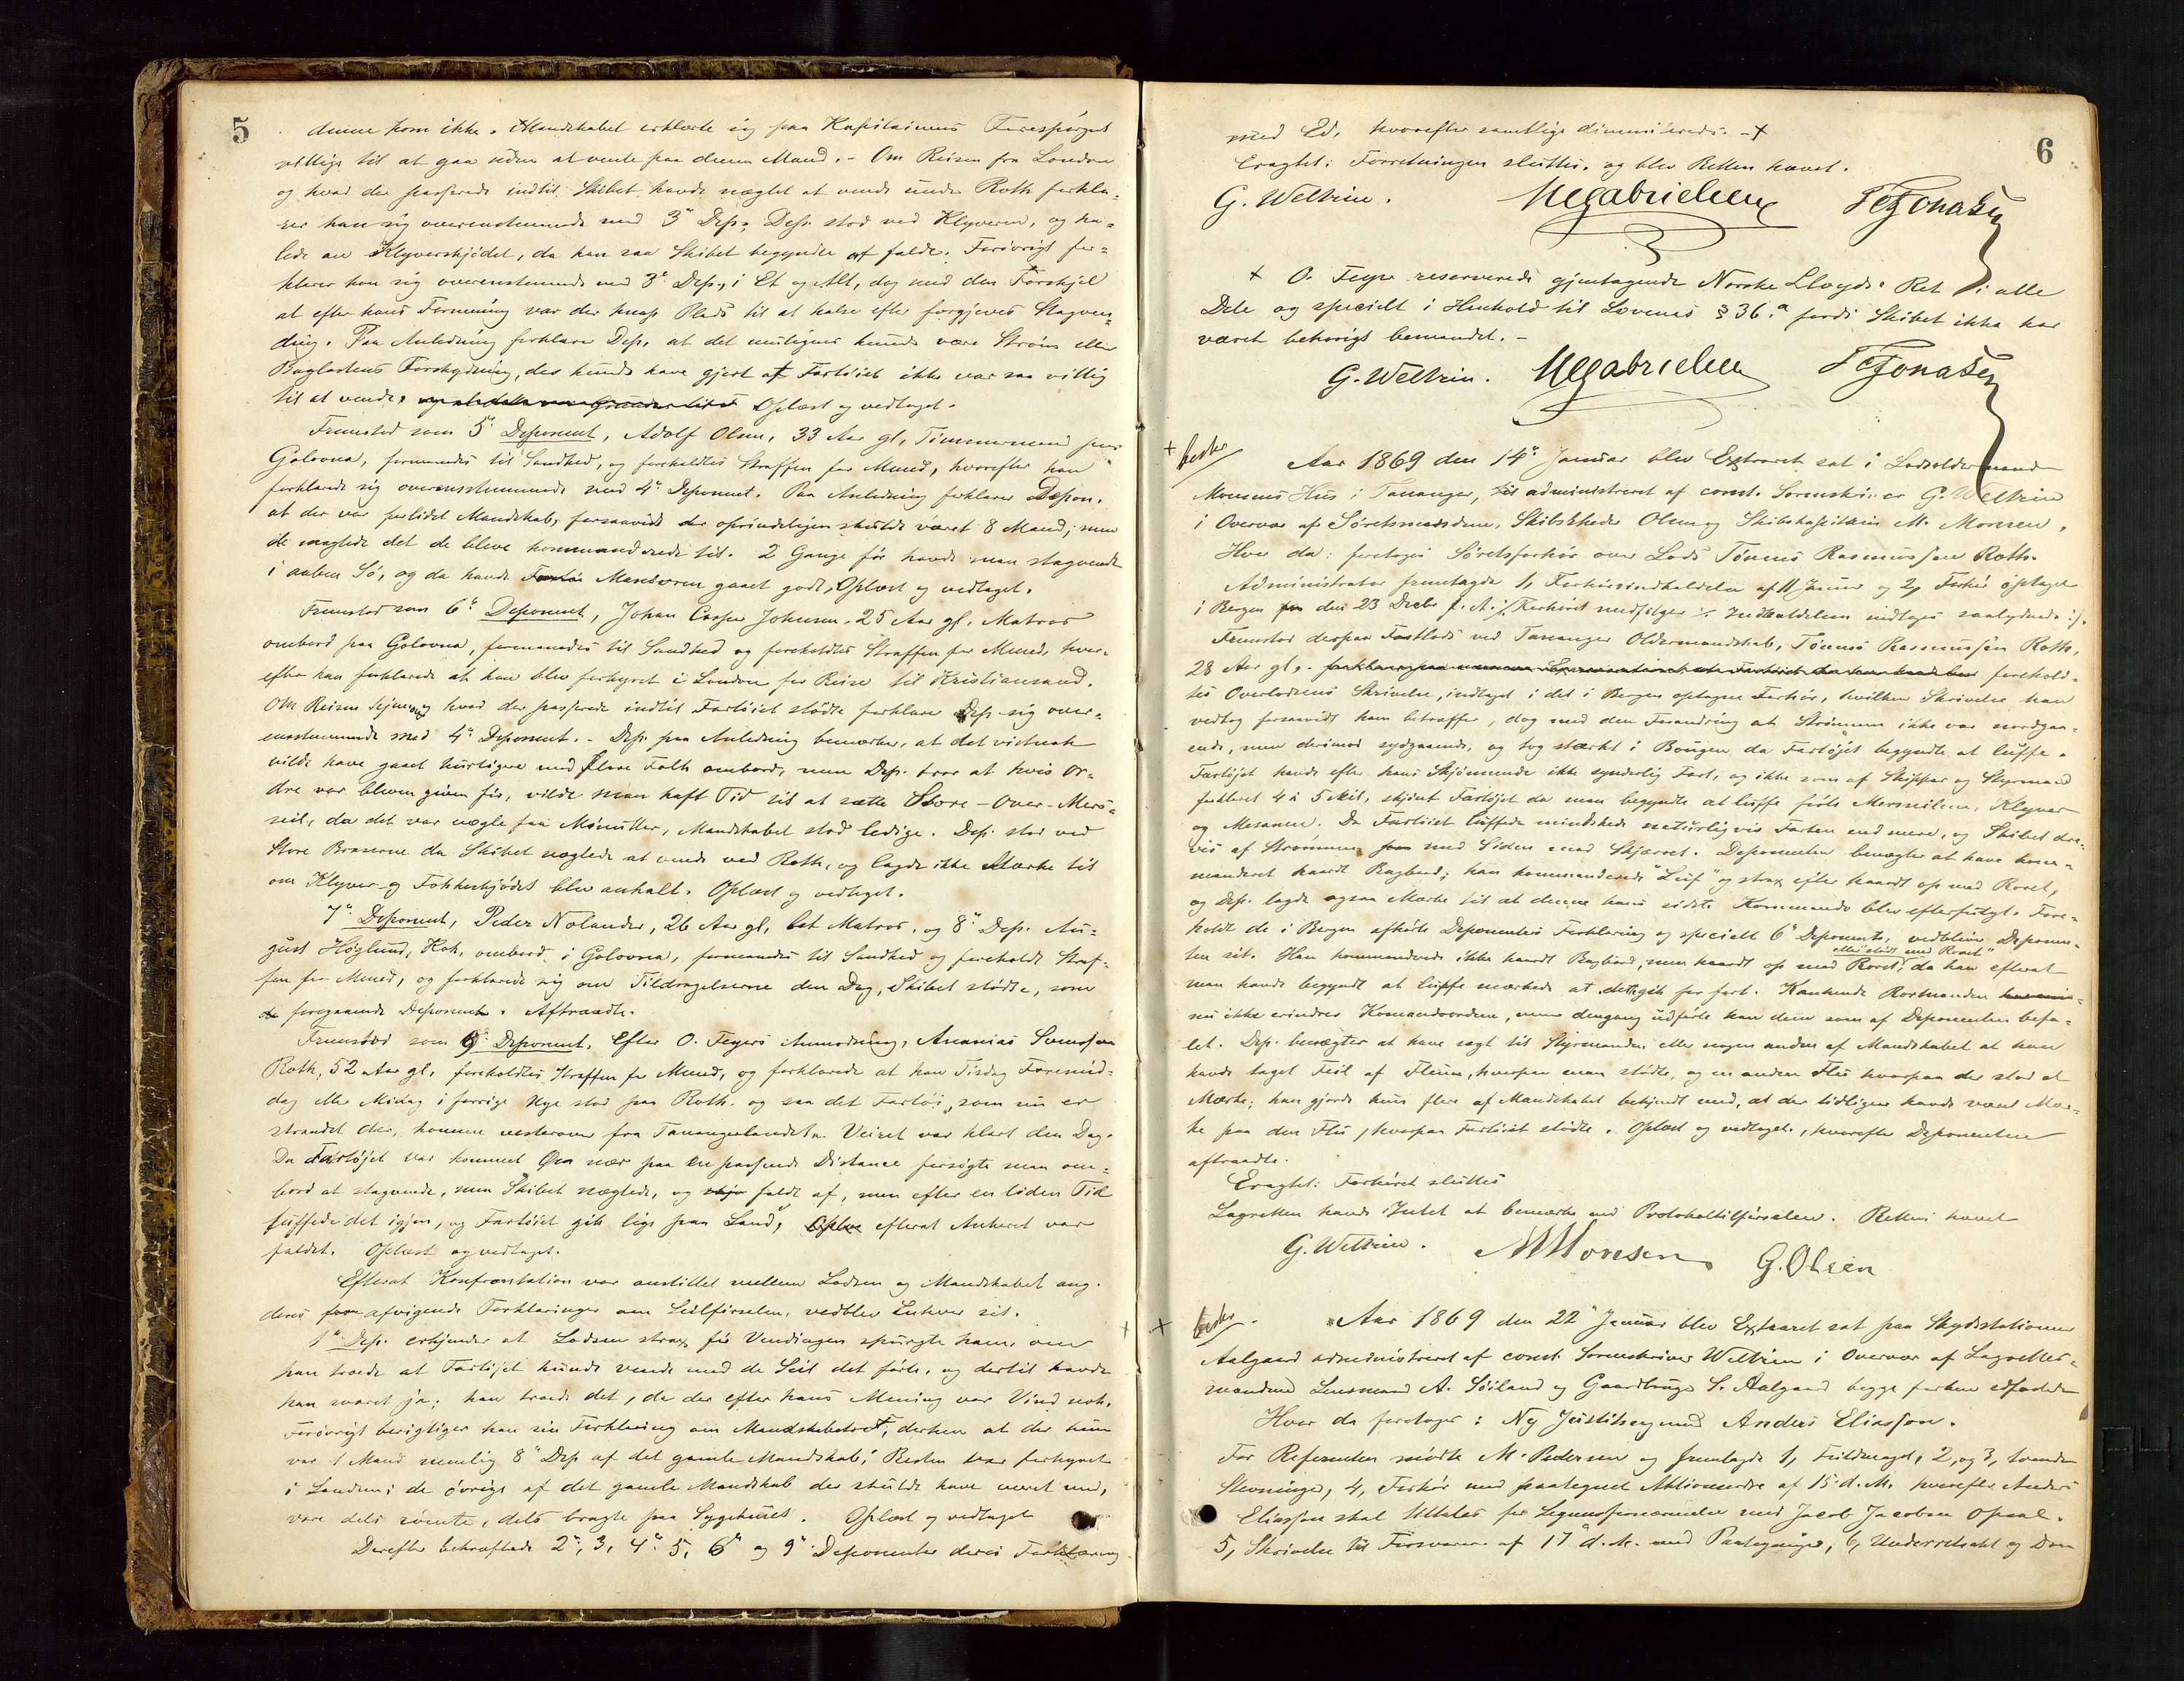 5
denne kom ikke. Mandskabet erklærte sig paa Kapitainens Forespørgsel
villige til at gaa uden at vente paa denne Mand. - Om Reisen fra London
og hvad der passerede indtil Skibet havde nægtet at vende under Roth forkla-
rer han sig overensstemmende med 3die Dep. Dep. stod ved Klyveren, og ha-
lede an Klyverskjødet, da han saa Skibet begyndte at falde. Forøvrigt for-
klarer han sig overensstemmende med 3die Dep. i Et og Alt, dog med den Forskjel
at efter hans Formening var der knap Plads til at halse efter forgjeves Stagven-
ding. Paa Anledning forklarer Dep. at det muligens kunde være Strøm eller
Baglastens Forskydning, der kunde have gjort at Fartøiet ikke var saa villig
til at vende. Oplæst og vedtaget.
Fremstod som 5te Deponent, Adolf Olsen, 33 Aar gl. Tømmermand paa
Golovna, formanedes til Sandhed, og foreholdtes Straffen for Mened, hvorefter han
forklarede sig overensstemmende med 4de Deponent. Paa Anledning forklarer Depon.
at der var forlidet Mandskab, forsaavidt der oprindeligen skulde været 8 Mand; men
de magtede det de bleve kommanderede til. 2 Gange før havde man stagvendt
i aaben Sø, og da havde Manøvren gaaet godt. Oplæst og vedtaget.
Fremstod som 6te Deponent, Johan Casper Johnsen, 25 Aar gl. Matros
ombord paa Golovna, formanedes til Sandhed og foreholdtes Straffen for Mened, hvor-
efter han forklarede at han blev forhyret i London for Reise til Kristiansand.
Om Reisen hjem og hvad der passerede indtil Fartøiet stødte forklarer Dep. sig over-
ensstemmende med 4de Deponent. - Dep. paa Anledning bemærker, at det vistnok
vilde have gaaet hurtigere med flere Folk ombord, men Dep. tror at hvis Or-
dre var bleven given før, vilde man haft Tid til at sætte Store-Over-Mers-
seil, da det var nogle faa Minutter, Mandskabet stod ledige. Dep. stod ved
Store Braserne da Skibet nægtede at vende ved Roth, og lagde ikke Mærke til
om Klyver og Fokkeskjødet blev anhalt. Oplæst og vedtaget.
7de Deponent, Peder Nolander, 26 Aar gl. let Matros, og 8de Dep. Au-
gust Höglund, Kok, ombord i Golovna, formanedes til Sandhed og foreholdt Straf-
fen for Mened, og forklarede sig om Tildragelserne den Dag, Skibet stødte, som
foregaaende Deponent. Aftraadte.
Fremstod som 9de Deponent, Efter O. Feyers Anmodning, Ananias Svendsen
Roth, 52 Aar gl. foreholdtes Straffen for Mened, og forklarede at han Tirsdag Formid-
dag eller Midag i forrige Uge stod paa Roth, og saa det Fartøi, som nu er
strandet der, komme vesterover fra Tanangerlandet. Veiret var klart den Dag.
Da Fartøjet var kommet Øen nær paa en passende Distance forsøgte man om-
bord at stagvende, men Skibet nægtede, og faldt af, men efter en liden Tid
luffede det igjen, og Fartøiet gik lige paa Land, efterat Ankeret var
faldet. Oplæst og vedtaget.
Efterat Konfrontation var anstillet mellem Lodsen og Mandskabet ang.
deres afvigende Forklaringer om Seilførselen, vedblev Enhver sit.
1ste Dep. erkjender at Lodsen strax før Vendingen spurgte ham, om
han troede at Fartøjet kunde vende med de Seil det førte, og dertil havde
han svaret ja; han troede det, da der efter hans Mening var Vind nok.
Forøvrigt berigtiger han sin Forklaring om Mandskabet, derhen at der kun
var 1 Mand nemlig 8de Dep af det gamle Mandskab; Resten var forhyret
i London; de øvrige af det gamle Mandskab der skulde have været med,
vare dels rømte, dels bragte paa Sygehuset. Oplæst og vedtaget
Derefter bekræftede 2den, 3, 4de 5, 6te og 9de Deponenter deres Forklaring
6
med Ed, hvorefter samtlige dimmitteredes. - +
Eragtet: Forretningen sluttes, og blev Retten hævet.
G. Weltzin. M Gabrielsen T Jonasen
+ O. Feyer reserverede gjentagende Norske Lloyds Ret i alle
Dele og specielt i Henhold til Lovens § 36. a fordi Skibet ikke har
været behørigt bemandet. -
G. Weltzin. M Gabrielsen T Jonasen
+ besk.
Aar 1869 den 14de Januar blev Extraret sat i Lodsoldermand
Monsens Hus i Tananger, administreret af const. Sorenskriver G. Weltzin
i Overvær af Søretsmændene, Skibsrheder Olsen og Skibskapitain M. Monsen.
Hvor da: foretoges Søretsforhør over Lods Tønnes Rasmussen Roth.
Administrator fremlagde 1, Forhørsindkaldelse af 11 Januar og 2, Forhør optaget
i Bergen den 23 Decbr f. A. /: Forhøret medfølger :/ Indkaldelsen indtages saalydende :/:
Fremstod derpaa Fastlods ved Tananger Oldermandskab, Tønnes Rasmussen Roth,
28 Aar gl. forehold-
tes Overlodsens Skrivelse, indtaget i det i Bergen optagne Forhør, hvilken Skrivelse han
vedtog forsaavidt ham betræffer, dog med den Forandring at Strømmen ikke var nordgaa-
ende, men derimod sydgaaende, og tog stærkt i Bougen da Fartøjet begyndte at luffe.
Fartøjet havde efter hans Skjønnende ikke synderlig Fart, og ikke som af Skipper og Styrmand
forklaret 4 à 5 Mil, skjønt Fartøjet da man begyndte at luffe førte Mersseilene, Klyver
og Mesanen. Da Fartøiet luffede mindskede naturligvis Farten end mere, og Skibet dre-
ves af Strømmen med Siden mod Skjæret. Deponenten benægter at have kom-
manderet haardt Bagbord; han kommanderede "Luf" og strax efter haardt op med Roret,
og Dep. lagde ogsaa Mærke til at denne hans sidste Kommando blev efterfulgt. Fore-
holdt de i Bergen afhørte Deponenters Forklaring og specielt 6te Deponents, vedbliver Deponen-
eller "stødt med Roret"
ten sit. Han kommanderede ikke haardt Bagbord, men haardt op med Roret, da han efterat
man havde begyndt at luffe mærkede at det gik for fort. Kanhende Rormanden
nu ikke erindrer Komandoordene, men dengang udførte han dem som af Deponenten befa-
let. Dep. benægter at have sagt til Styrmanden eller nogen anden af Mandskabet at han
havde taget Feil af Fluen, hvorpaa man stødte, og en anden Flu hvorpaa der stod et
Mærke; han gjorde kun flere af Mandskabet bekjendt med, at der tidligere havde været Mær-
ke paa den Flu, hvorpaa Fartøiet stødte. Oplæst og vedtaget, hvorefter Deponenten
aftraadte.
Eragtet: Forhøret sluttes
Lagretten havde Intet at bemærke ved Protokoltilførselen. Retten hævet
G. Weltzin. M Monsen G. Olsen
+ besk.
Aar 1869 den 22de Januar blev Extraret sat paa Skydsstationen
Aalgaard administreret af const. Sorenskriver Weltzin i Overvær af Lagrettes-
mændene Lensmand A. Søiland og Gaardbruger S. Aalgaard begge forhen edfæstede
Hvor da foretoges: No Justitssag mod Anders Eliassen.
For Referenten mødte M. Pedersen og fremlagde 1, Fuldmagt, 2, og 3, tvende
Stevninger, 4, Forhør med paategnet Aktionsordre af 15 d. M. hvorefter Anders
Eliassen skal tiltales for Legemsfornærmelse mod Jacob Jacobsen Opsal.
5, Skrivelse til Forsvareren af 17de d. M. med Paategninger, 6, Underretsakt og Dom